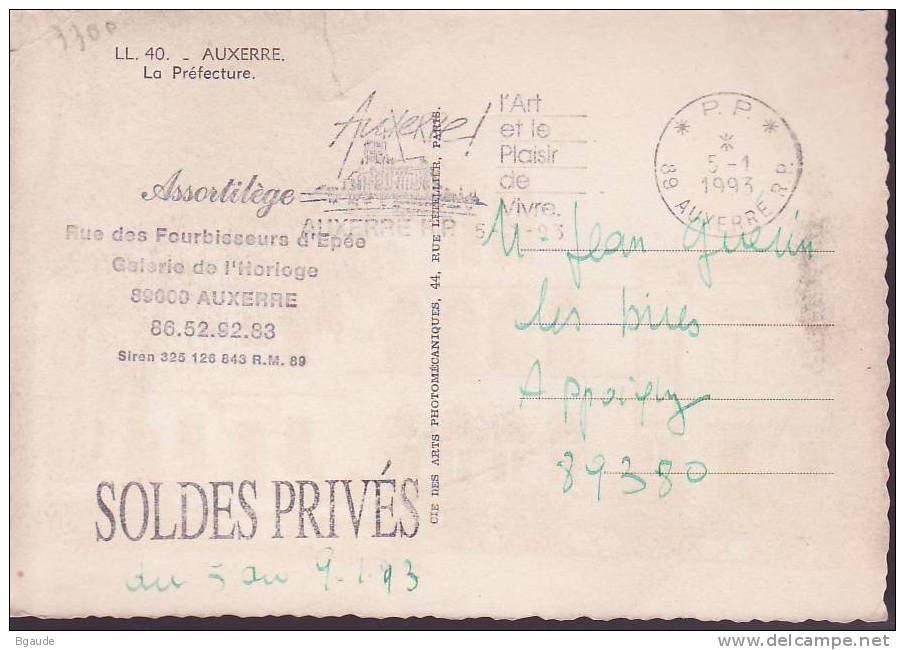 3300
LL. 40. - AUXERRE.
La Préfecture.
Auxerre!
l'Art
et le
Plaisir
de
Vivre.
AUXERRE R.P. 5-1-93
* P.P. *
*
5-1
1993
89 AUXERRE R.P.
Assortilège
Rue des Fourbisseurs d'Epée
Galerie de l'Horloge
89000 AUXERRE
86.52.92.83
Siren 325 126 843 R.M. 89
CIE DES ARTS PHOTOMÉCANIQUES, 44, RUE LETELLIER, PARIS.
Mr Jean Guerin
les
Appoigny
89380
SOLDES PRIVÉS
du 5 au 9.1.93
Bgaude
delcampe.net